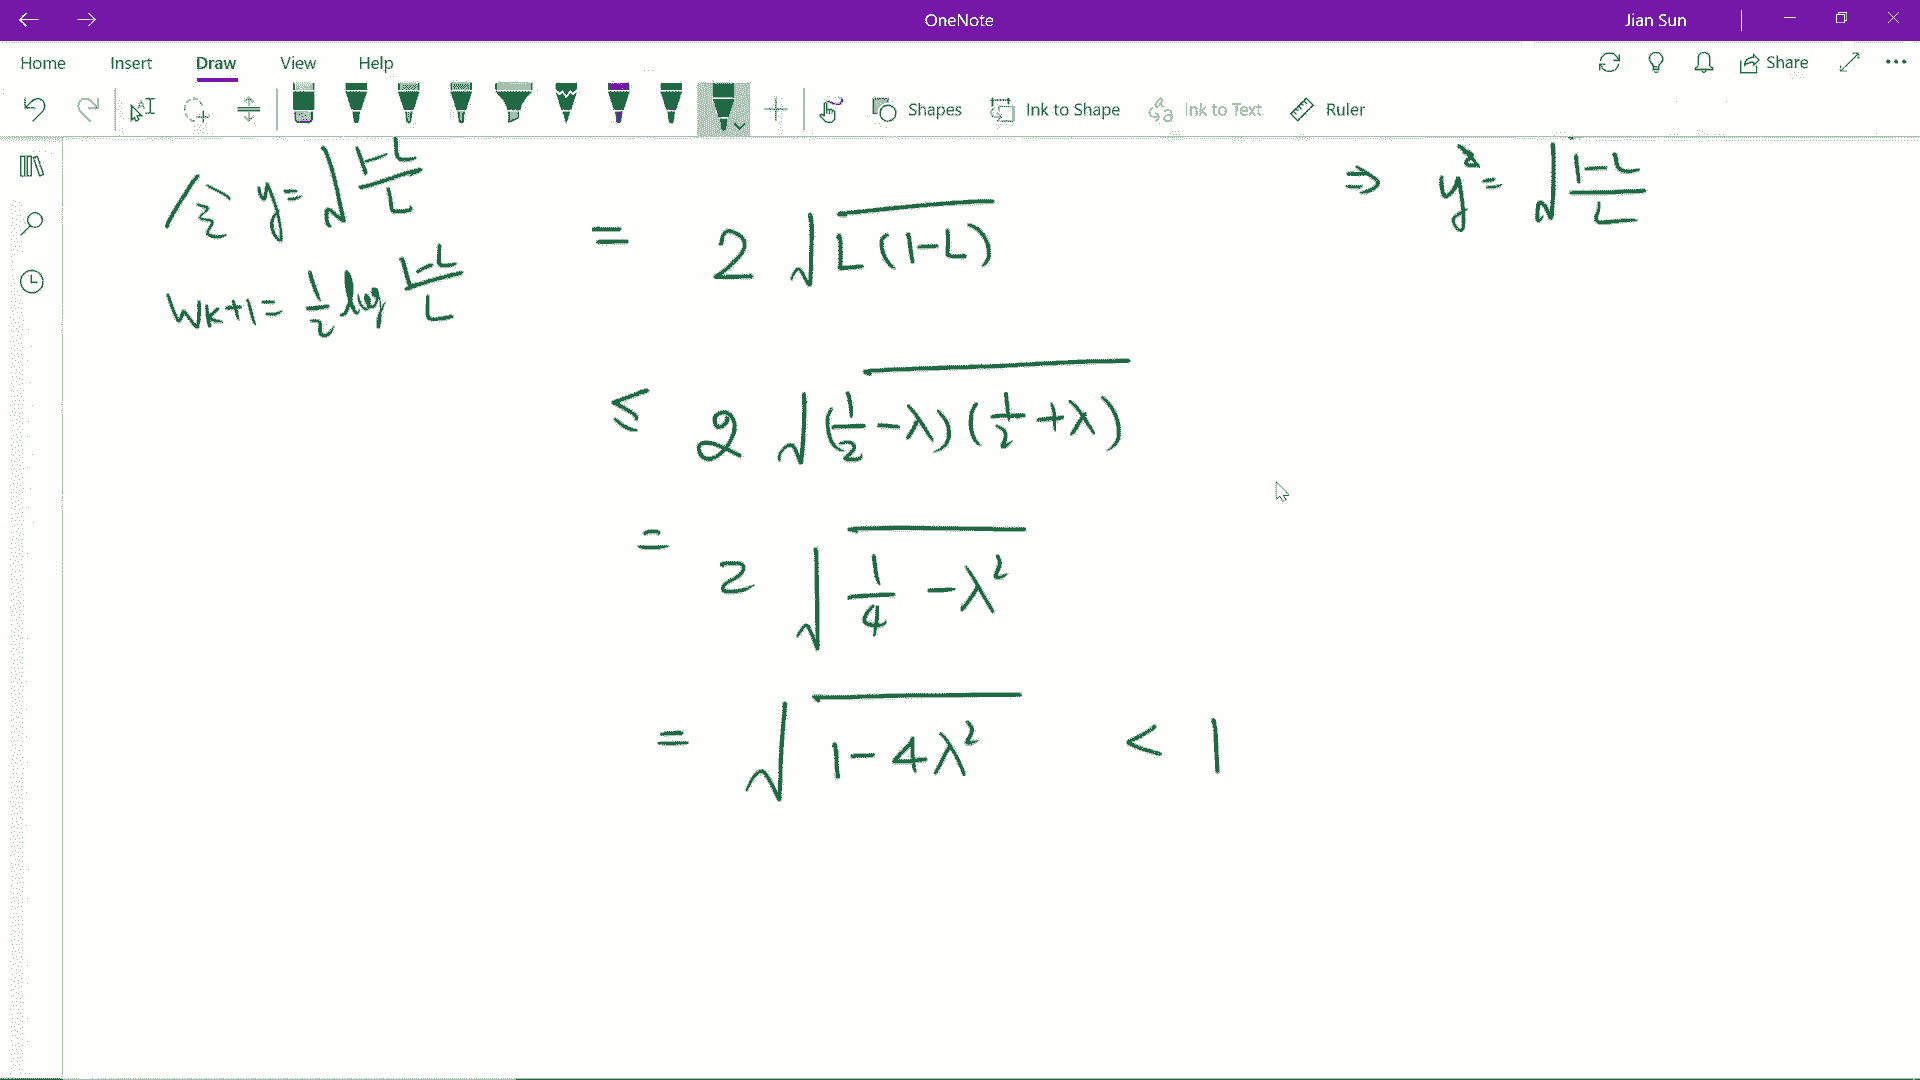 OneNote
Jian Sun
Home Insert Draw View Help
Share
Shapes Ink to Shape Ink to Text Ruler
y = √((1-L)/L)
⇒ y² = √((1-L)/L)
= 2 √(L(1-L))
Wk+1 = 1/2 log (1-L)/L
≤ 2 √((1/2 - λ)(1/2 + λ))
= 2 √(1/4 - λ²)
= √(1 - 4λ²) < 1